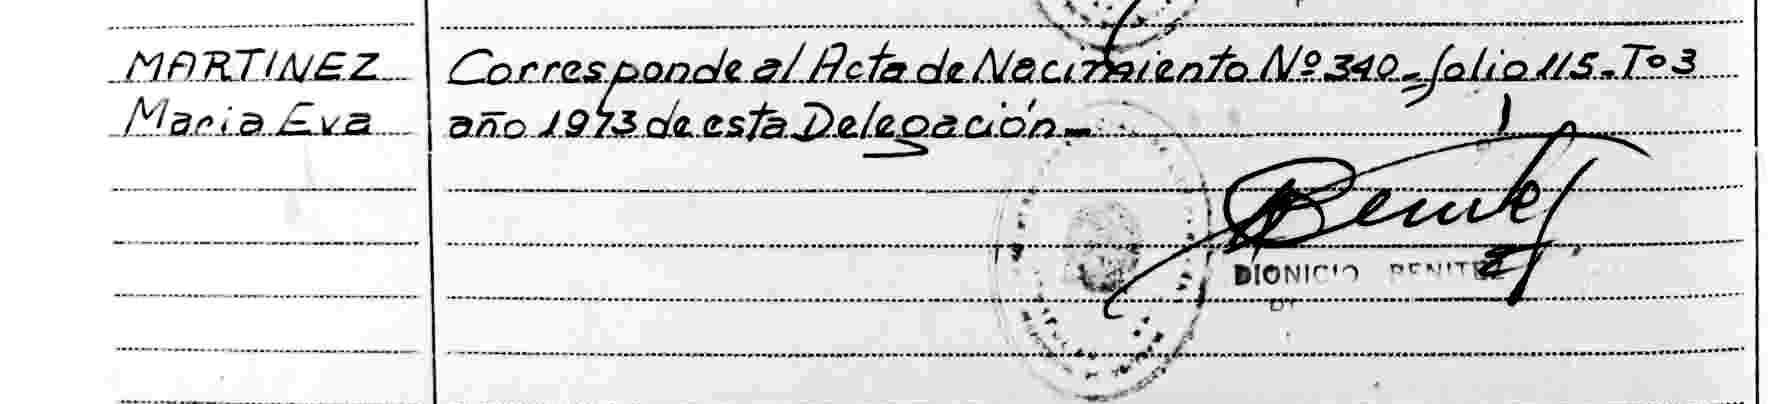 MARTINEZ Corresponde al Acta de Nacimiento Nº 340 - folio 115. Tº 3
Maria Eva año 1973 de esta Delegación -
Benitez
DIONICIO BENITEZ